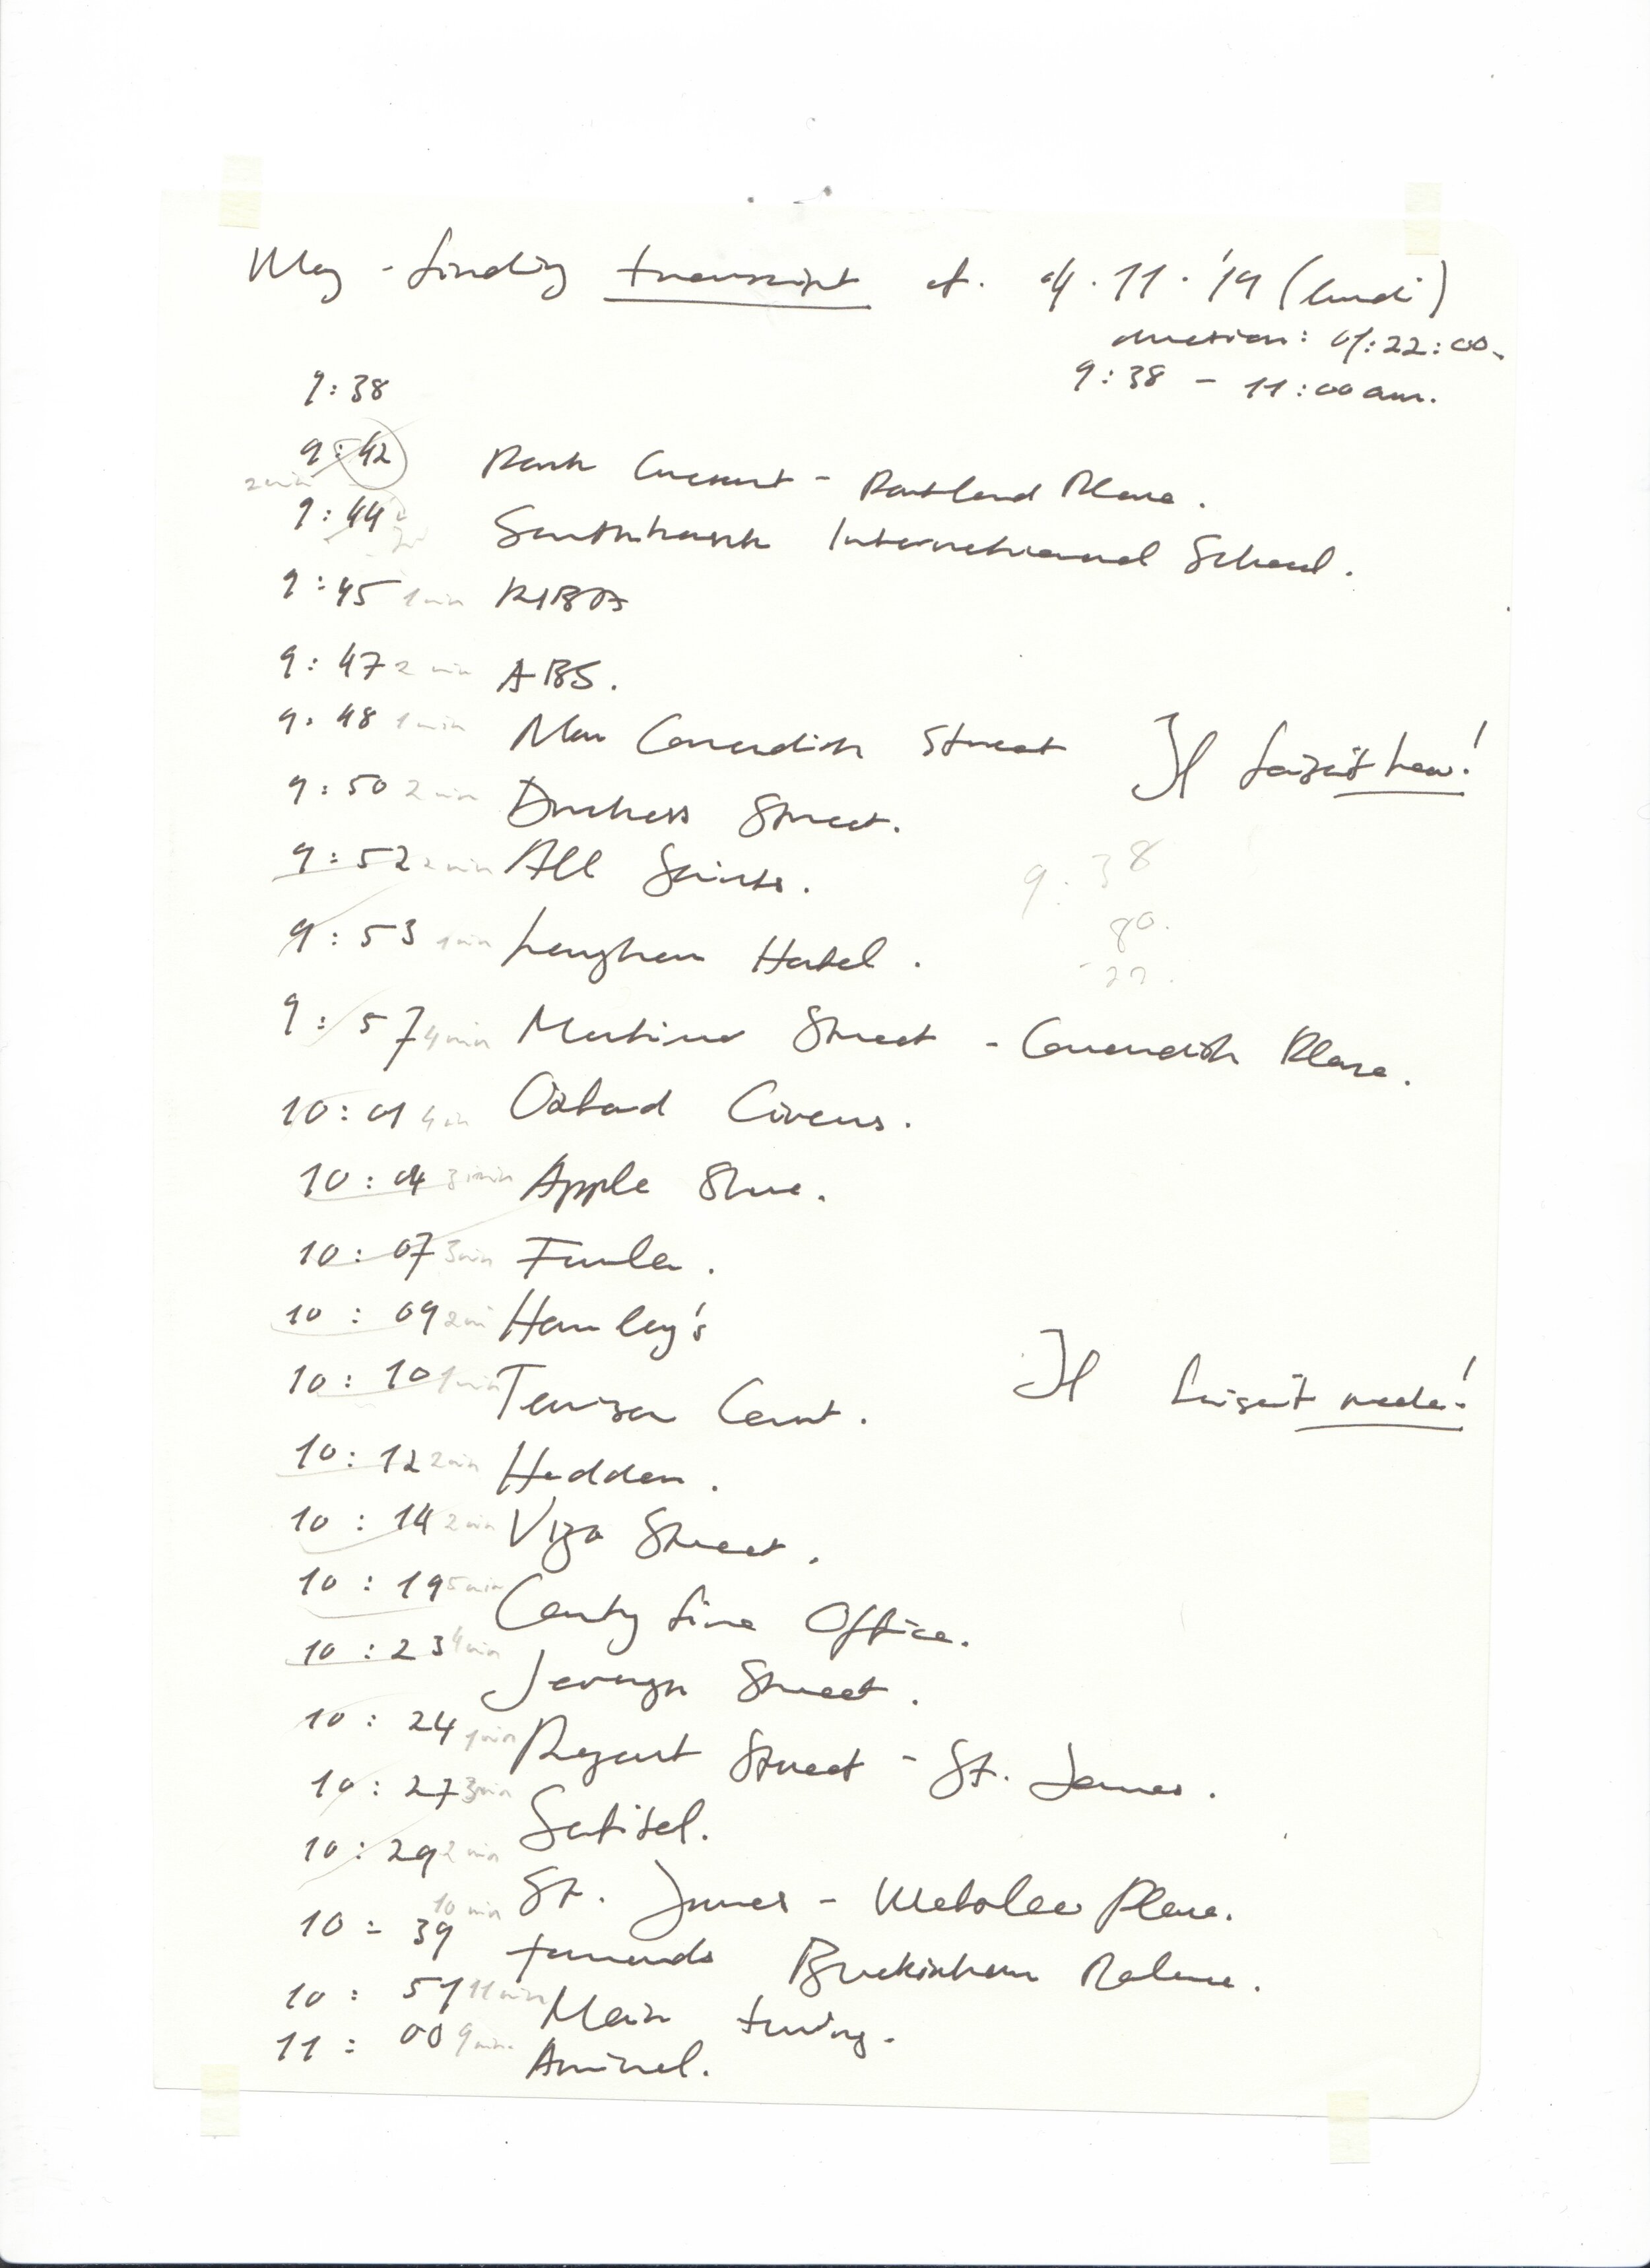 Way-finding transcript of. 04.11.'19 (lundi)
duration: 01:22:00.
9:38 - 11:00 am.
9:38
9:42 Park Crescent - Portland Place.
2 min
9:44 Southbank International School.
9:45 1 min RIBA
9:47 2 min ABS.
9:48 1 min New Cavendish Street
Il faisait beau!
9:50 2 min Duchess Street.
9:52 2 min All Saints.
9:38
80.
-22.
9:53 1 min Langham Hotel.
9:57 4 min Mortimer Street - Cavendish Place.
10:01 4 min Oxford Circus.
10:04 3 min Apple Store.
10:07 3 min Furla.
10:09 2 min Hamley's
10:10 1 min Tenison Court.
Il faisait
10:12 2 min Heddon.
10:14 2 min Vigo Street.
10:19 5 min County Fire Office.
10:23 4 min Jermyn Street.
10:24 1 min Regent Street - St. James.
10:27 3 min Sofitel.
10:29 2 min St. James - Waterloo Place.
10:39 10 min towards Buckinham Palace.
10:51 11 min Main
11:00 9 min. Arrival.